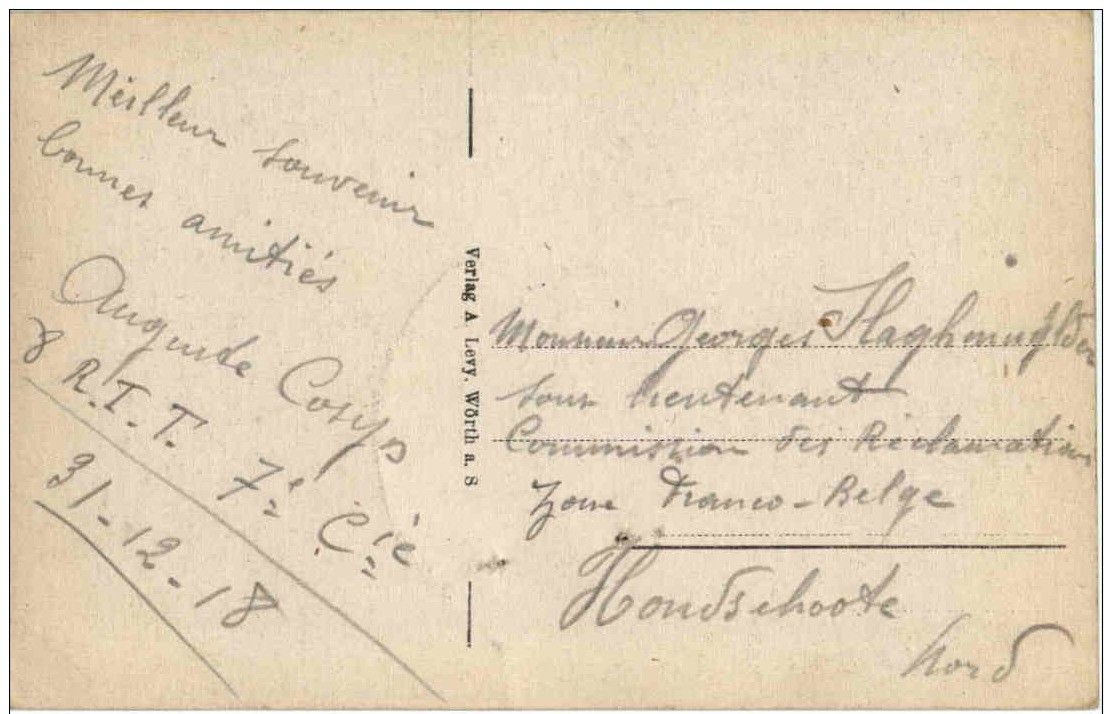 Meilleur souvenir
bonnes amitiés
Auguste Cosyn
8 R.T.T. 7è Cie
31-12-18
Verlag A. Levy, Wörth a. S
Monsieur Georges
Sous lieutenant
Commission des Réclamations
Zone Franco-Belge
Hondschoote
Nord